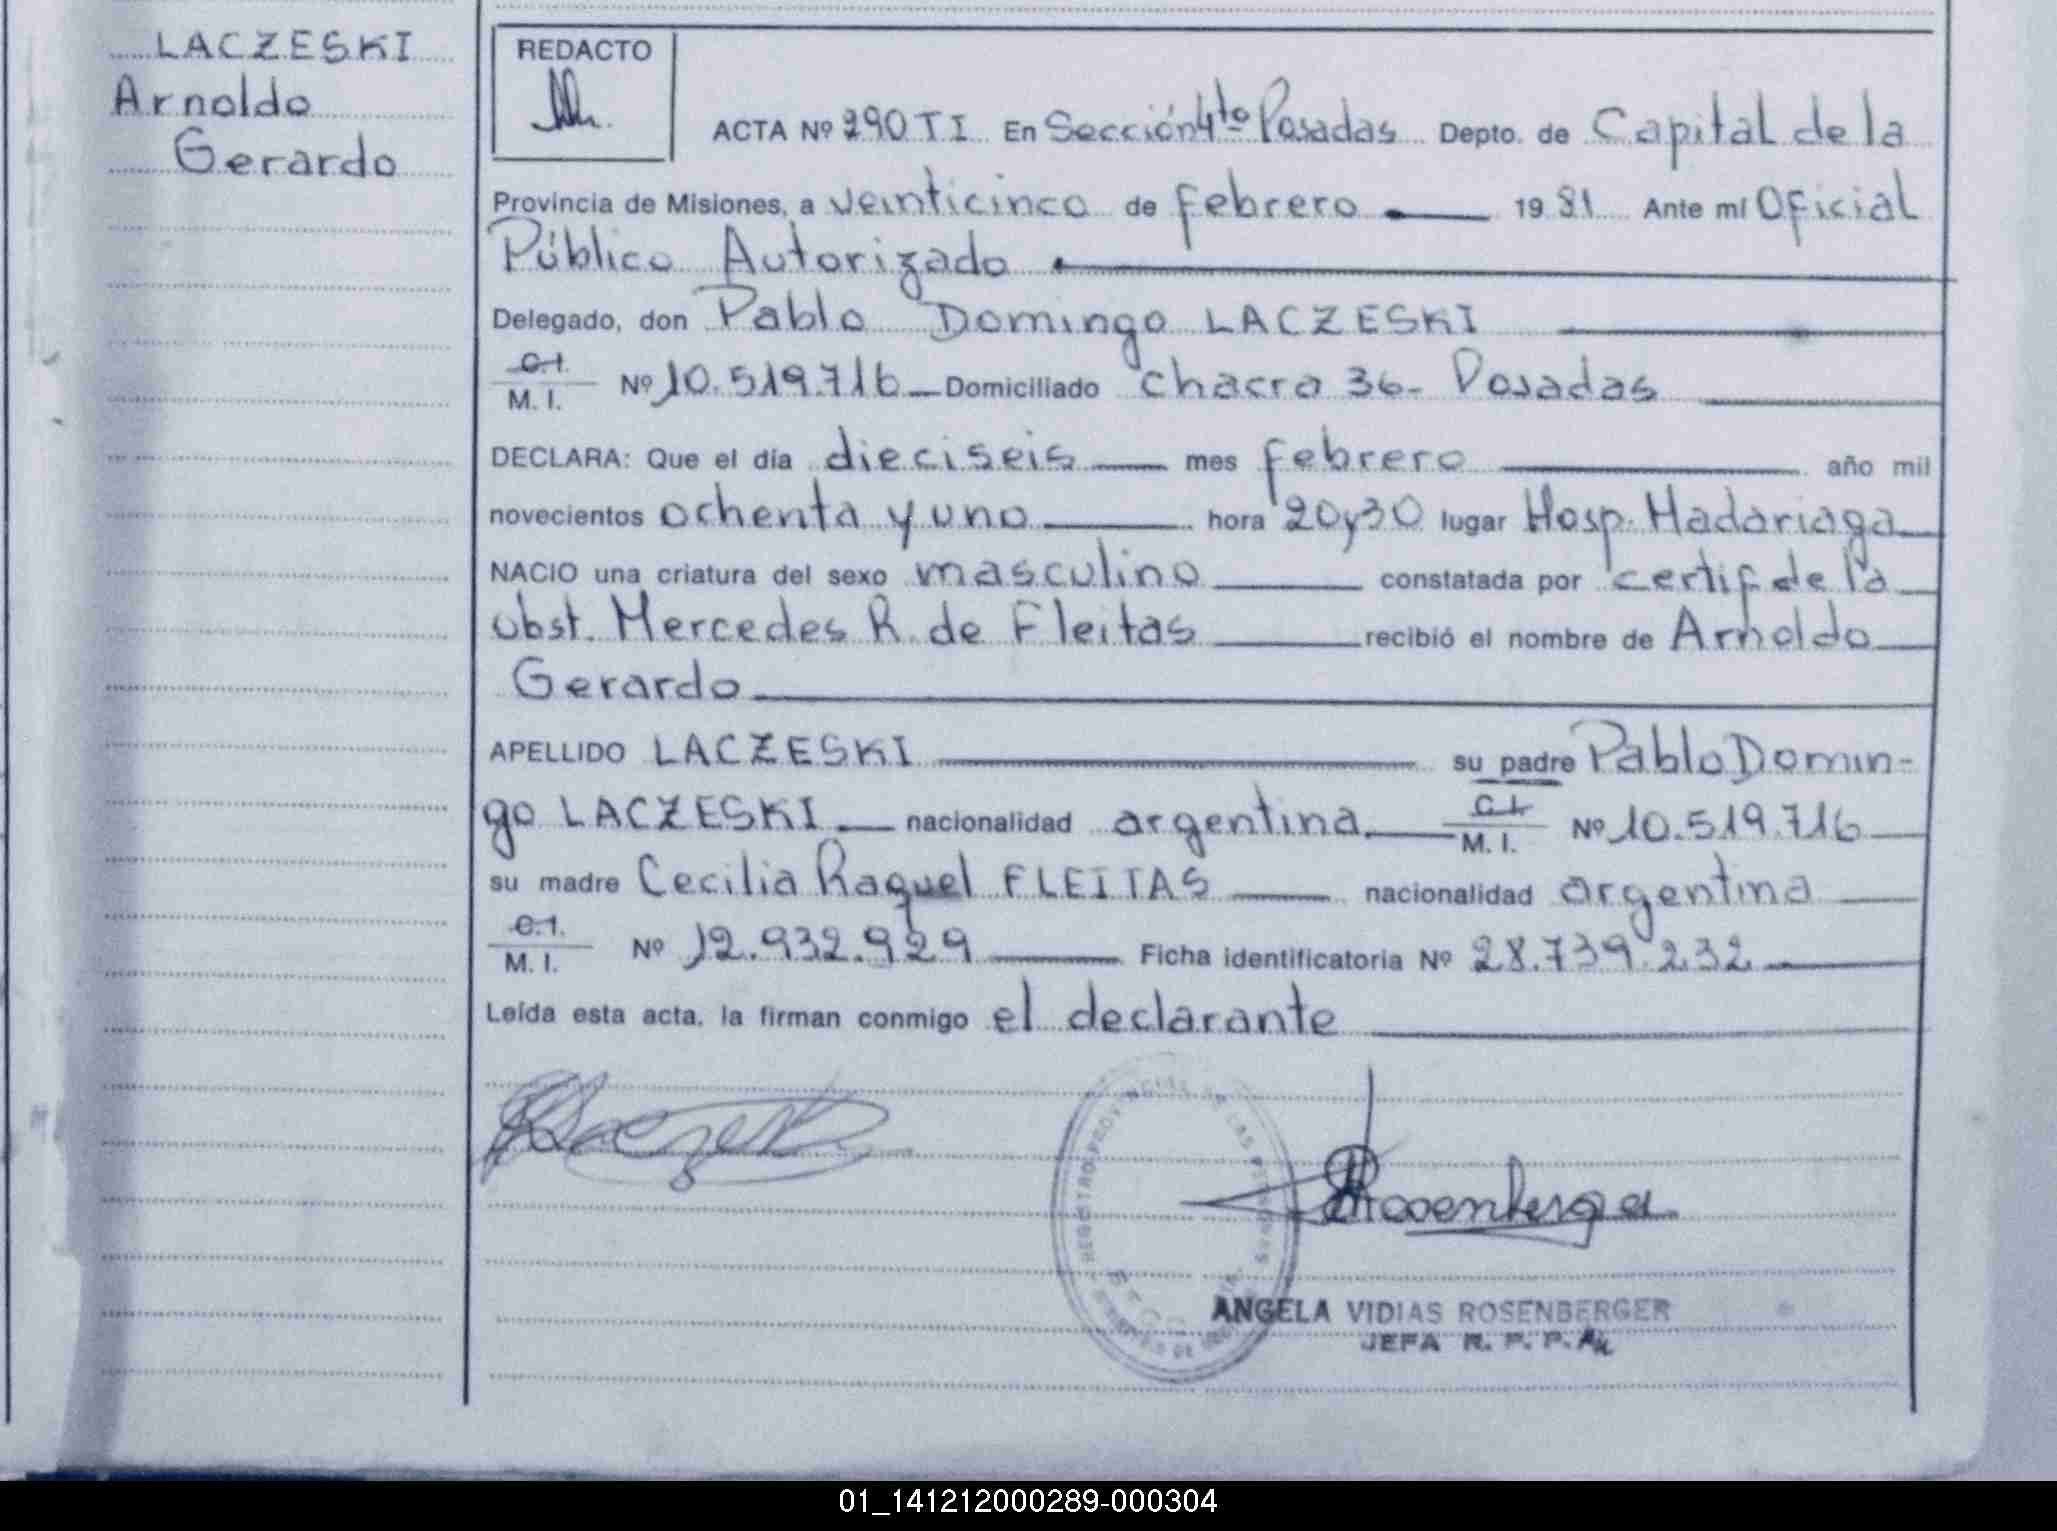 LACZESKI
Arnoldo
Gerardo
REDACTO
ACTA Nº 290 T I En Sección 4to Posadas Depto. de Capital de la
Provincia de Misiones, a veinticinco de febrero 19 81 Ante mí Oficial
Público Autorizado
Delegado, don Pablo Domingo LACZESKI
C.I.
M. I. Nº 10.519.716 Domiciliado chacra 36- Posadas
DECLARA: Que el día dieciseis mes febrero año mil
novecientos ochenta y uno hora 20y30 lugar Hosp. Madariaga
NACIO una criatura del sexo masculino constatada por certif de la
obst. Mercedes R. de Fleitas recibió el nombre de Arnoldo
Gerardo
APELLIDO LACZESKI su padre Pablo Domin-
go LACZESKI nacionalidad argentina C.I.
M. I. Nº 10.519.716
su madre Cecilia Raquel FLEITAS nacionalidad argentina
C.I.
M. I. Nº 12.932.929 Ficha identificatoria Nº 28.739.232
Leída esta acta, la firman conmigo el declarante
REGISTRO PROVINCIAL DE LAS PERSONAS
Rosenberger
ANGELA VIDIAS ROSENBERGER
JEFA R. P. P.
01_141212000289-000304